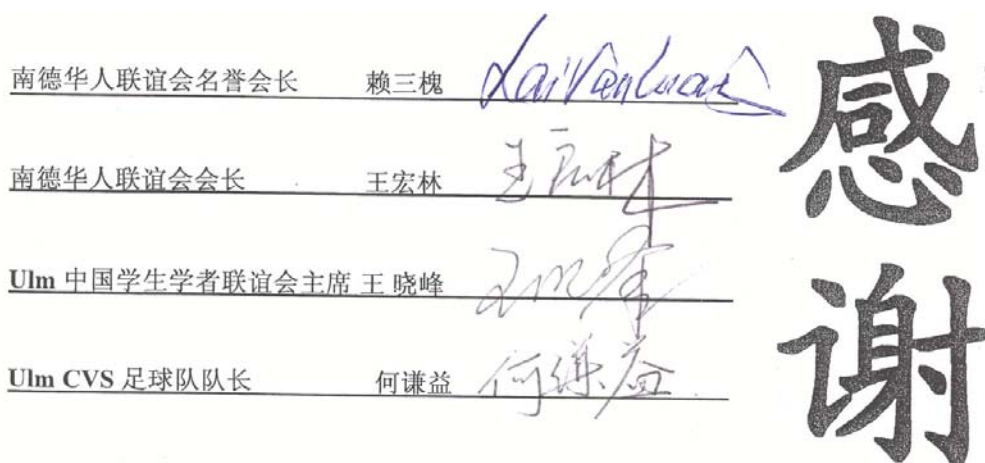 南德华人联谊会名誉会长 赖三槐
南德华人联谊会会长 王宏林 王宏林
Ulm 中国学生学者联谊会主席 王 晓峰 王晓峰
Ulm CVS 足球队队长 何谦益 何谦益
感谢